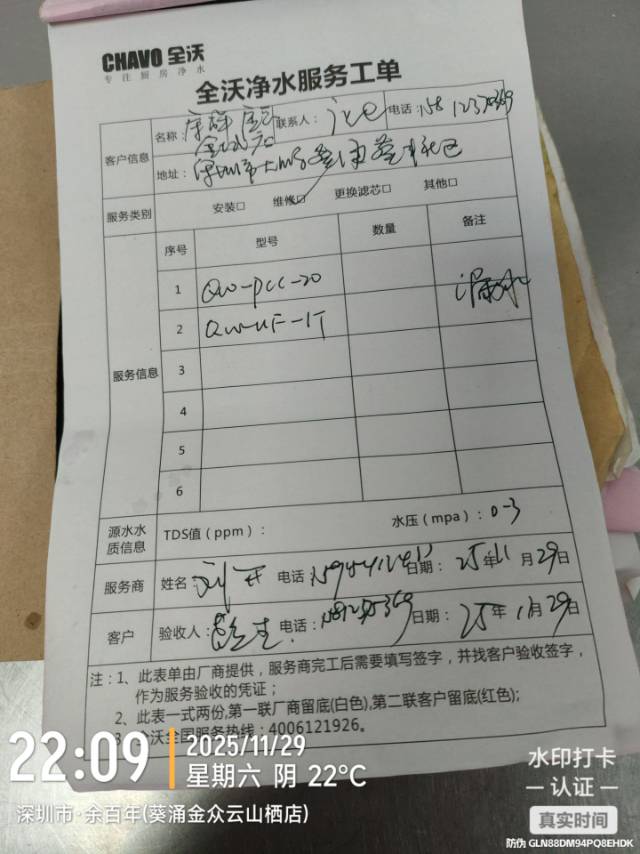 CHAVO 全沃
专注厨房净水
全沃净水服务工单
客户信息
名称：
联系人：
电话：
地址：深圳市
服务类别
安装□ 维修□ 更换滤芯□ 其他□
服务信息
序号 型号 数量 备注
1 QW-PCC-20
2 QW-UF-1T
3
4
5
6
源水水质信息
TDS值（ppm）： 水压（mpa）：0-3
服务商 姓名 刘 电话 日期：25年11月29日
客户 验收人： 电话： 日期：25年11月29日
注：1、此表单由厂商提供，服务商完工后需要填写签字，并找客户验收签字，
作为服务验收的凭证；
2、此表一式两份,第一联厂商留底(白色),第二联客户留底(红色);
全沃全国服务热线：4006121926。
22:09
2025/11/29
星期六 阴 22°C
深圳市·余百年(葵涌金众云山栖店)
水印打卡
认证
真实时间
防伪 GLN88DM94PQ8EHDK